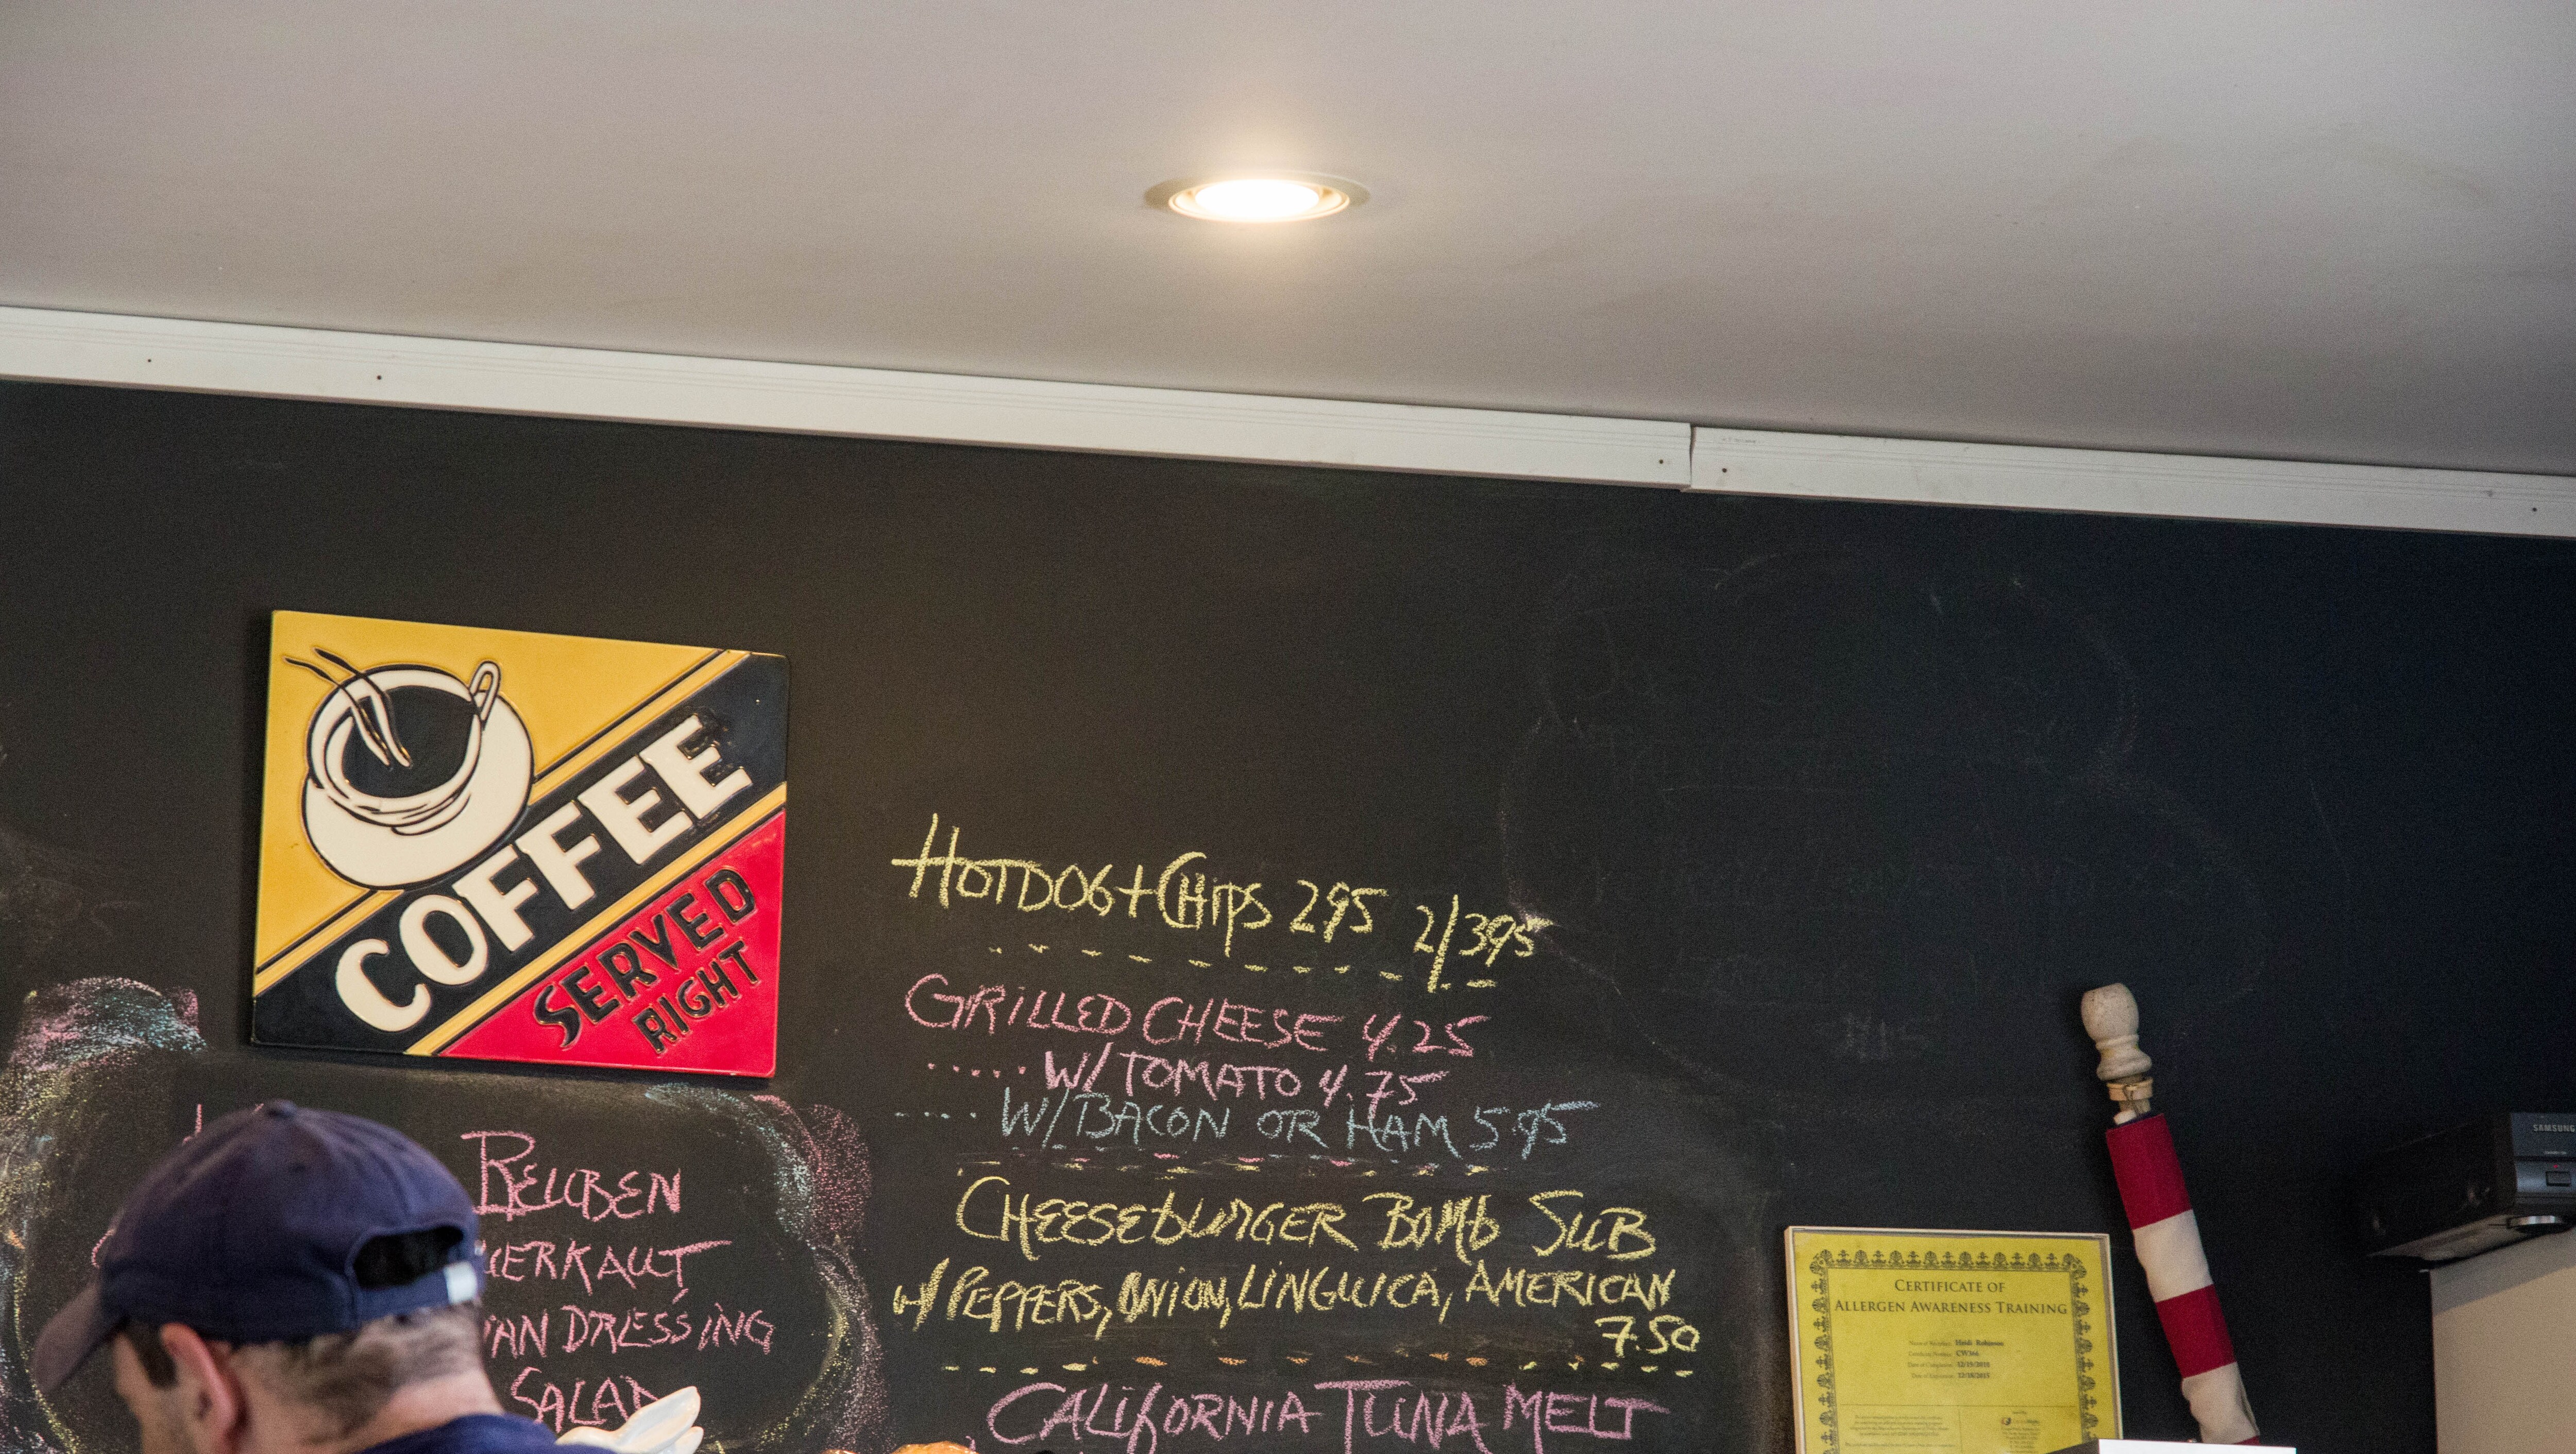 COFFEE
SERVED
RIGHT
REUBEN
DRESSING
SALAD
HOTDOG + CHIPS 2.95 2/3.95
GRILLED CHEESE 4.25
..... W/ TOMATO 4.75
.... W/ BACON OR HAM 5.95
CHEESEBURGER BOMB SUB
W/ PEPPERS, ONION, LINGUICA, AMERICAN
7.50
CALIFORNIA TUNA MELT
CERTIFICATE OF
ALLERGEN AWARENESS TRAINING
SAMSUNG